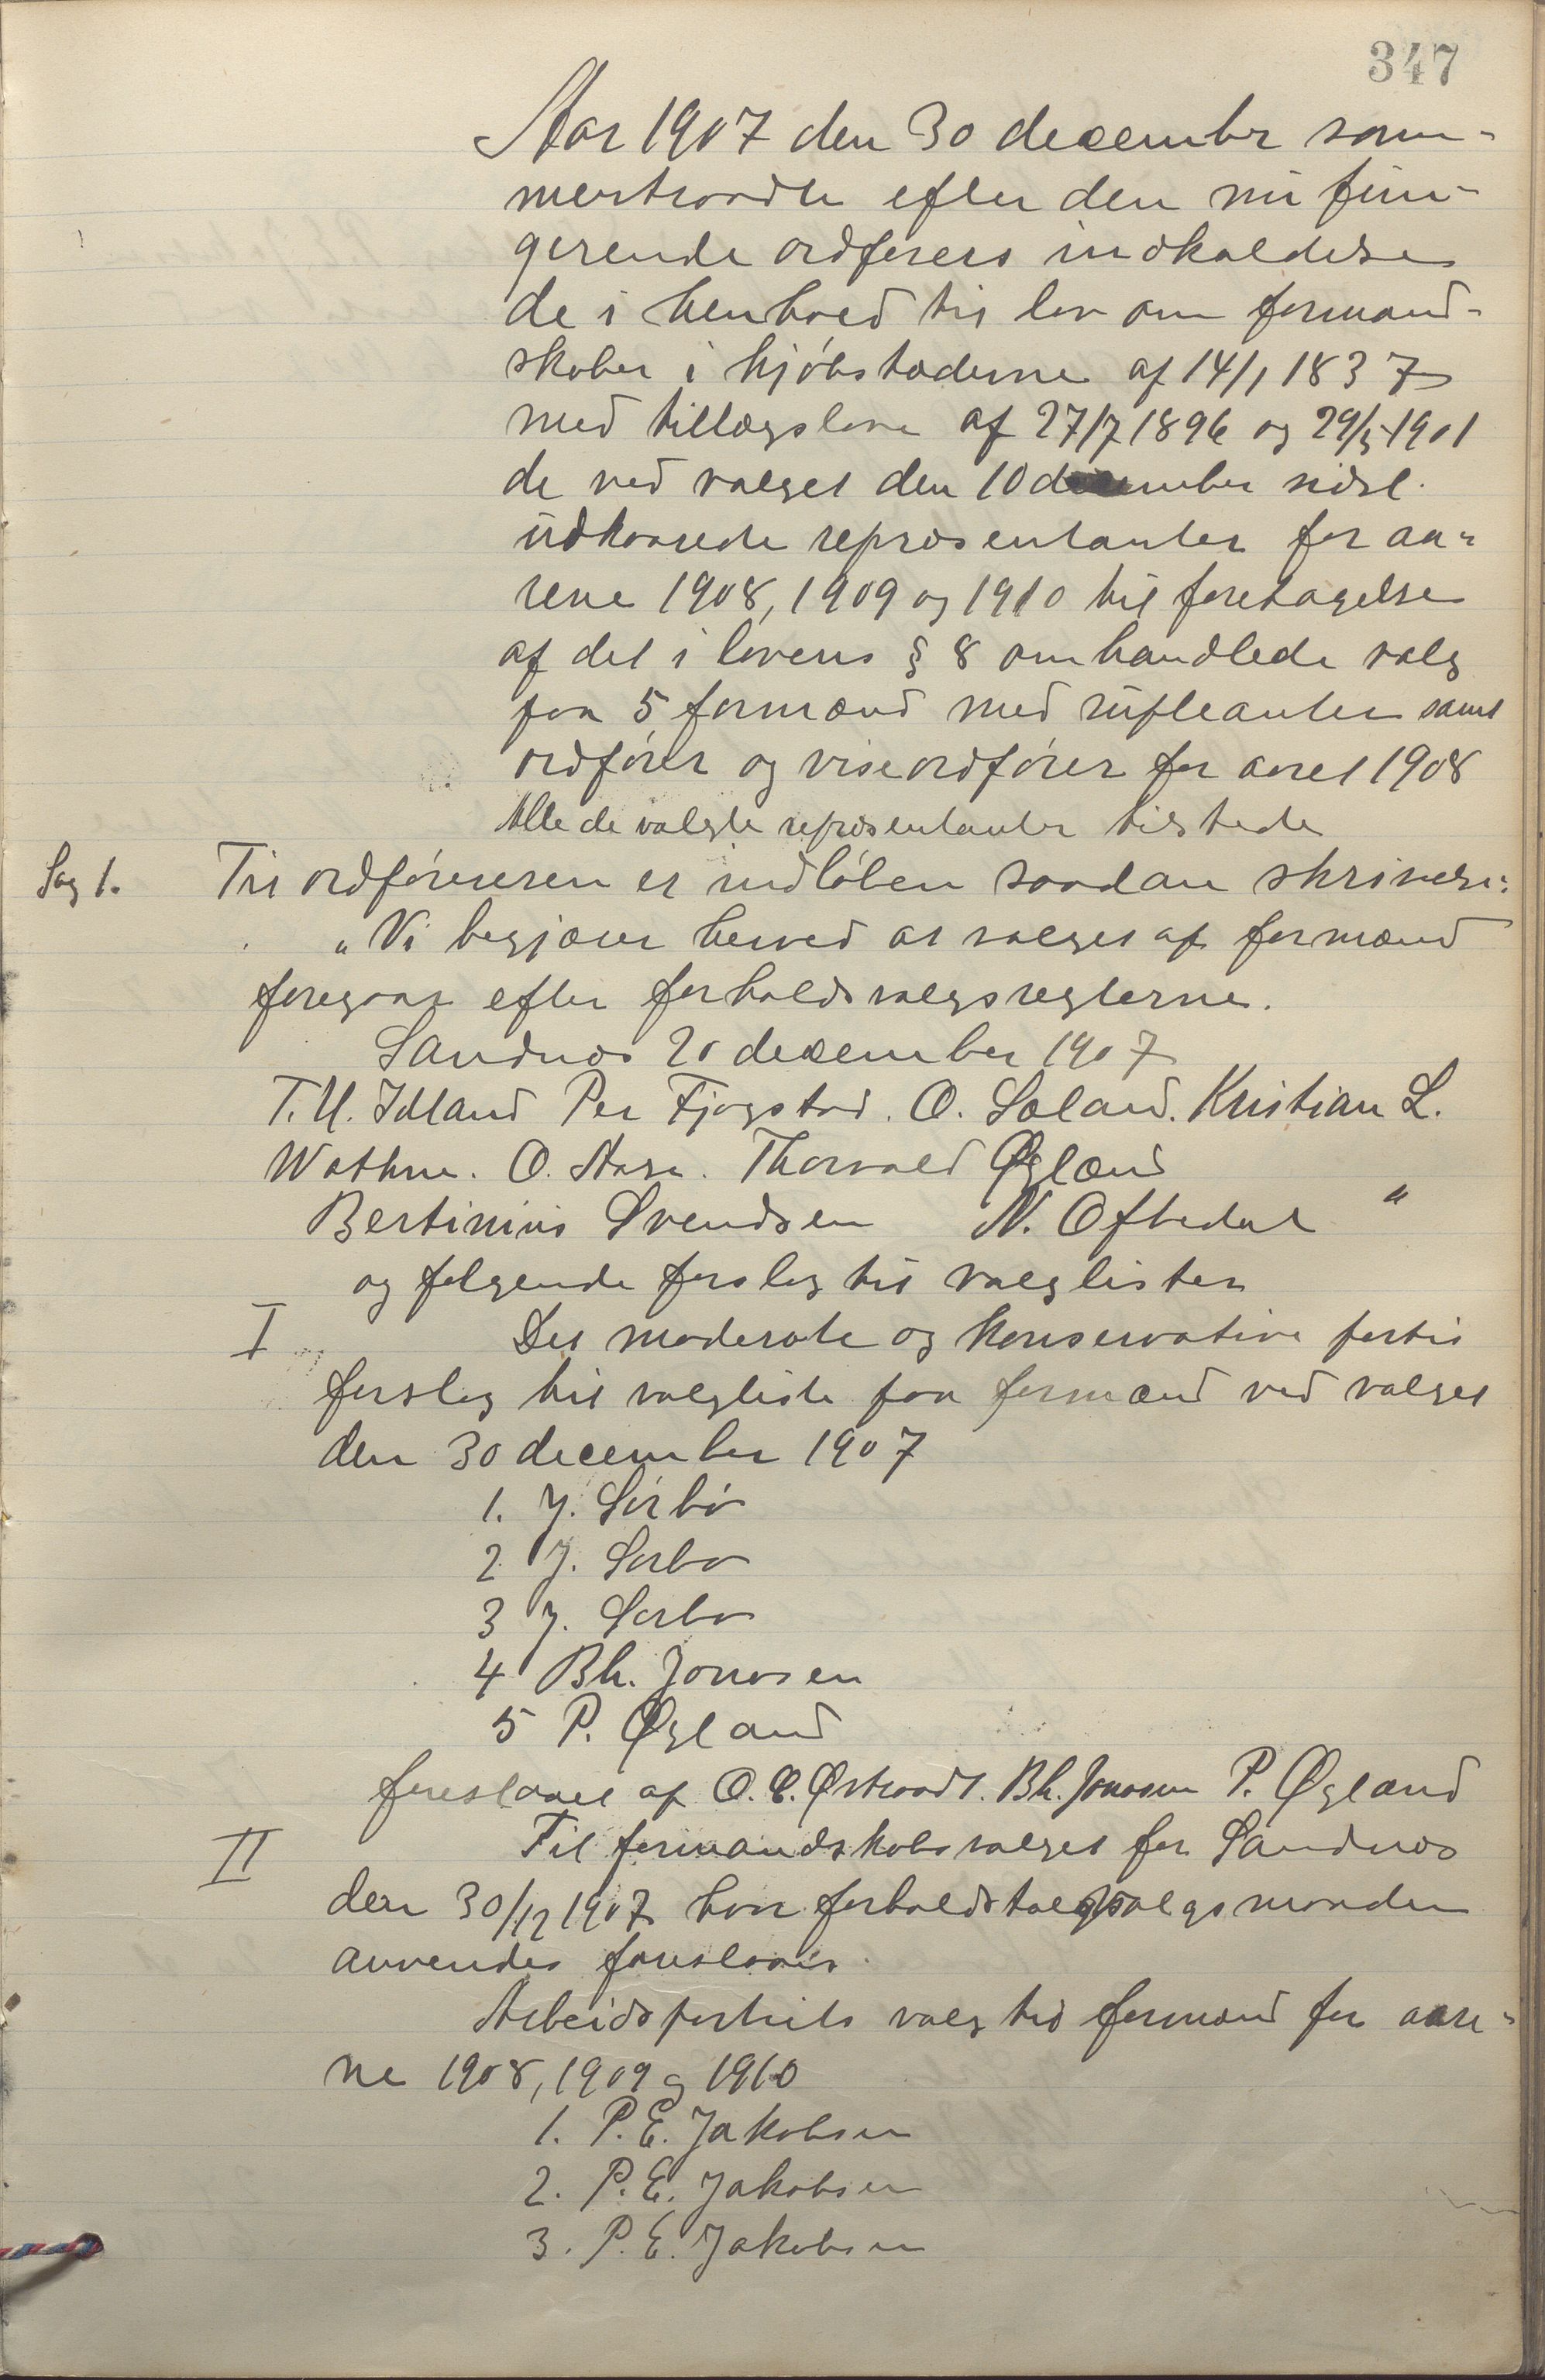 347
Aar 1907 den 30 december sam-
mentraadte efter den nu fun-
gerende ordførers indkaldelse
de i henhold til lov om formand-
skaber i kjøbstæderne af 14/1 1837
med tillægslove af 27/7 1896 og 29/5 1901
de ved valget den 10 december sidstl.
udkaarede repræsentanter for aa-
rene 1908, 1909 og 1910 til foretagelse
af det i lovens § 8 omhandlede valg
paa 5 formænd med supleanter samt
ordfører og viseordfører for aaret 1908
Alle de valgte repræsentanter tilstede
Sag 1. Til ordføreren er indløben saadan skrivelse:
"Vi begjærer herved at valget af formænd
foregaar efter forholdsvalgsreglerne.
Sandnæs 20 december 1907
T. U. Idland Per Fjogstad. O. Sæland. Kristian L.
Wathne. O. Aase. Thorvald Øglænd
Bertinius Svendsen N. Oftedal "
og følgende forslag til valglister
I Det moderate og konservative partis
forslag til valgliste paa formænd ved valget
den 30 december 1907
1. J. Sørbø
2 J. Sørbø
3 J. Sørbø
4 Bh. Jonasen
5 P. Øgland
foreslaaet af O. E. Østraadt. Bh. Jonasen P. Øgland
II Til formandskabsvalget for Sandnæs
den 30/12 1907 hvor forholdstalsvalgsmaaden
anvendes foreslaaes.
Arbeidspartiets valg til formænd for aare-
ne 1908, 1909 og 1910
1. P. E. Jakobsen
2. P. E. Jakobsen
3. P. E. Jakobsen